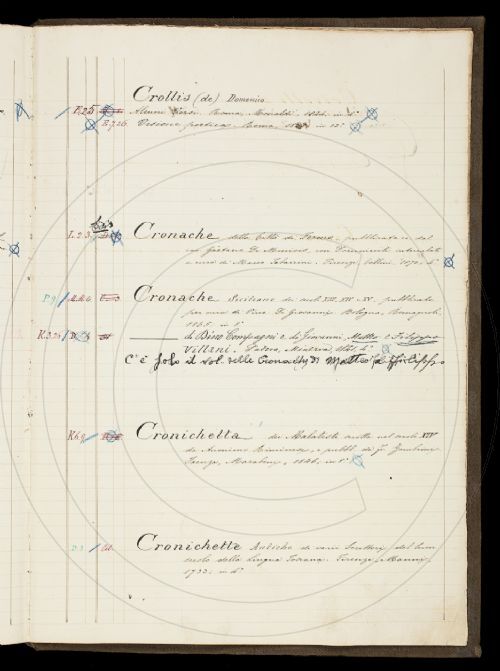 Crollis (de) Domenico
E.25 Alcuni versi. Roma, Monaldi, 1844, in 8°
E.7.26 Visione poetica. Roma, in 12°
L.2.3 Cronache della Città di Fermo, pubblicate dal
cav. Gaetano De Minicis, con Documenti intercalati
a cura di Marco Tabarrini. Firenze, Cellini, 1870. 4°
P.9 Cronache Siciliane dei secoli XIII, XIV e XV, pubblicate
per cura di Vinc. Di Giovanni. Bologna, Romagnoli,
1865. in 8°
di Dino Compagni e di Giovanni, Matteo e Filippo
Villani. Padova, Minerva, 1841. 4°
C'è solo il vol. delle Cronache di Matteo e Filippo
K.6.9 Cronichetta dei Malatesti scritta nel secolo XIV
da Anonimo Riminese, e pubbl. da Fr. Zambrini
Faenza, Marabini, 1846, in 8°
Cronichette Antiche di varii Scrittori del buon
secolo della lingua Toscana. Firenze, Manni,
1733. in 4°